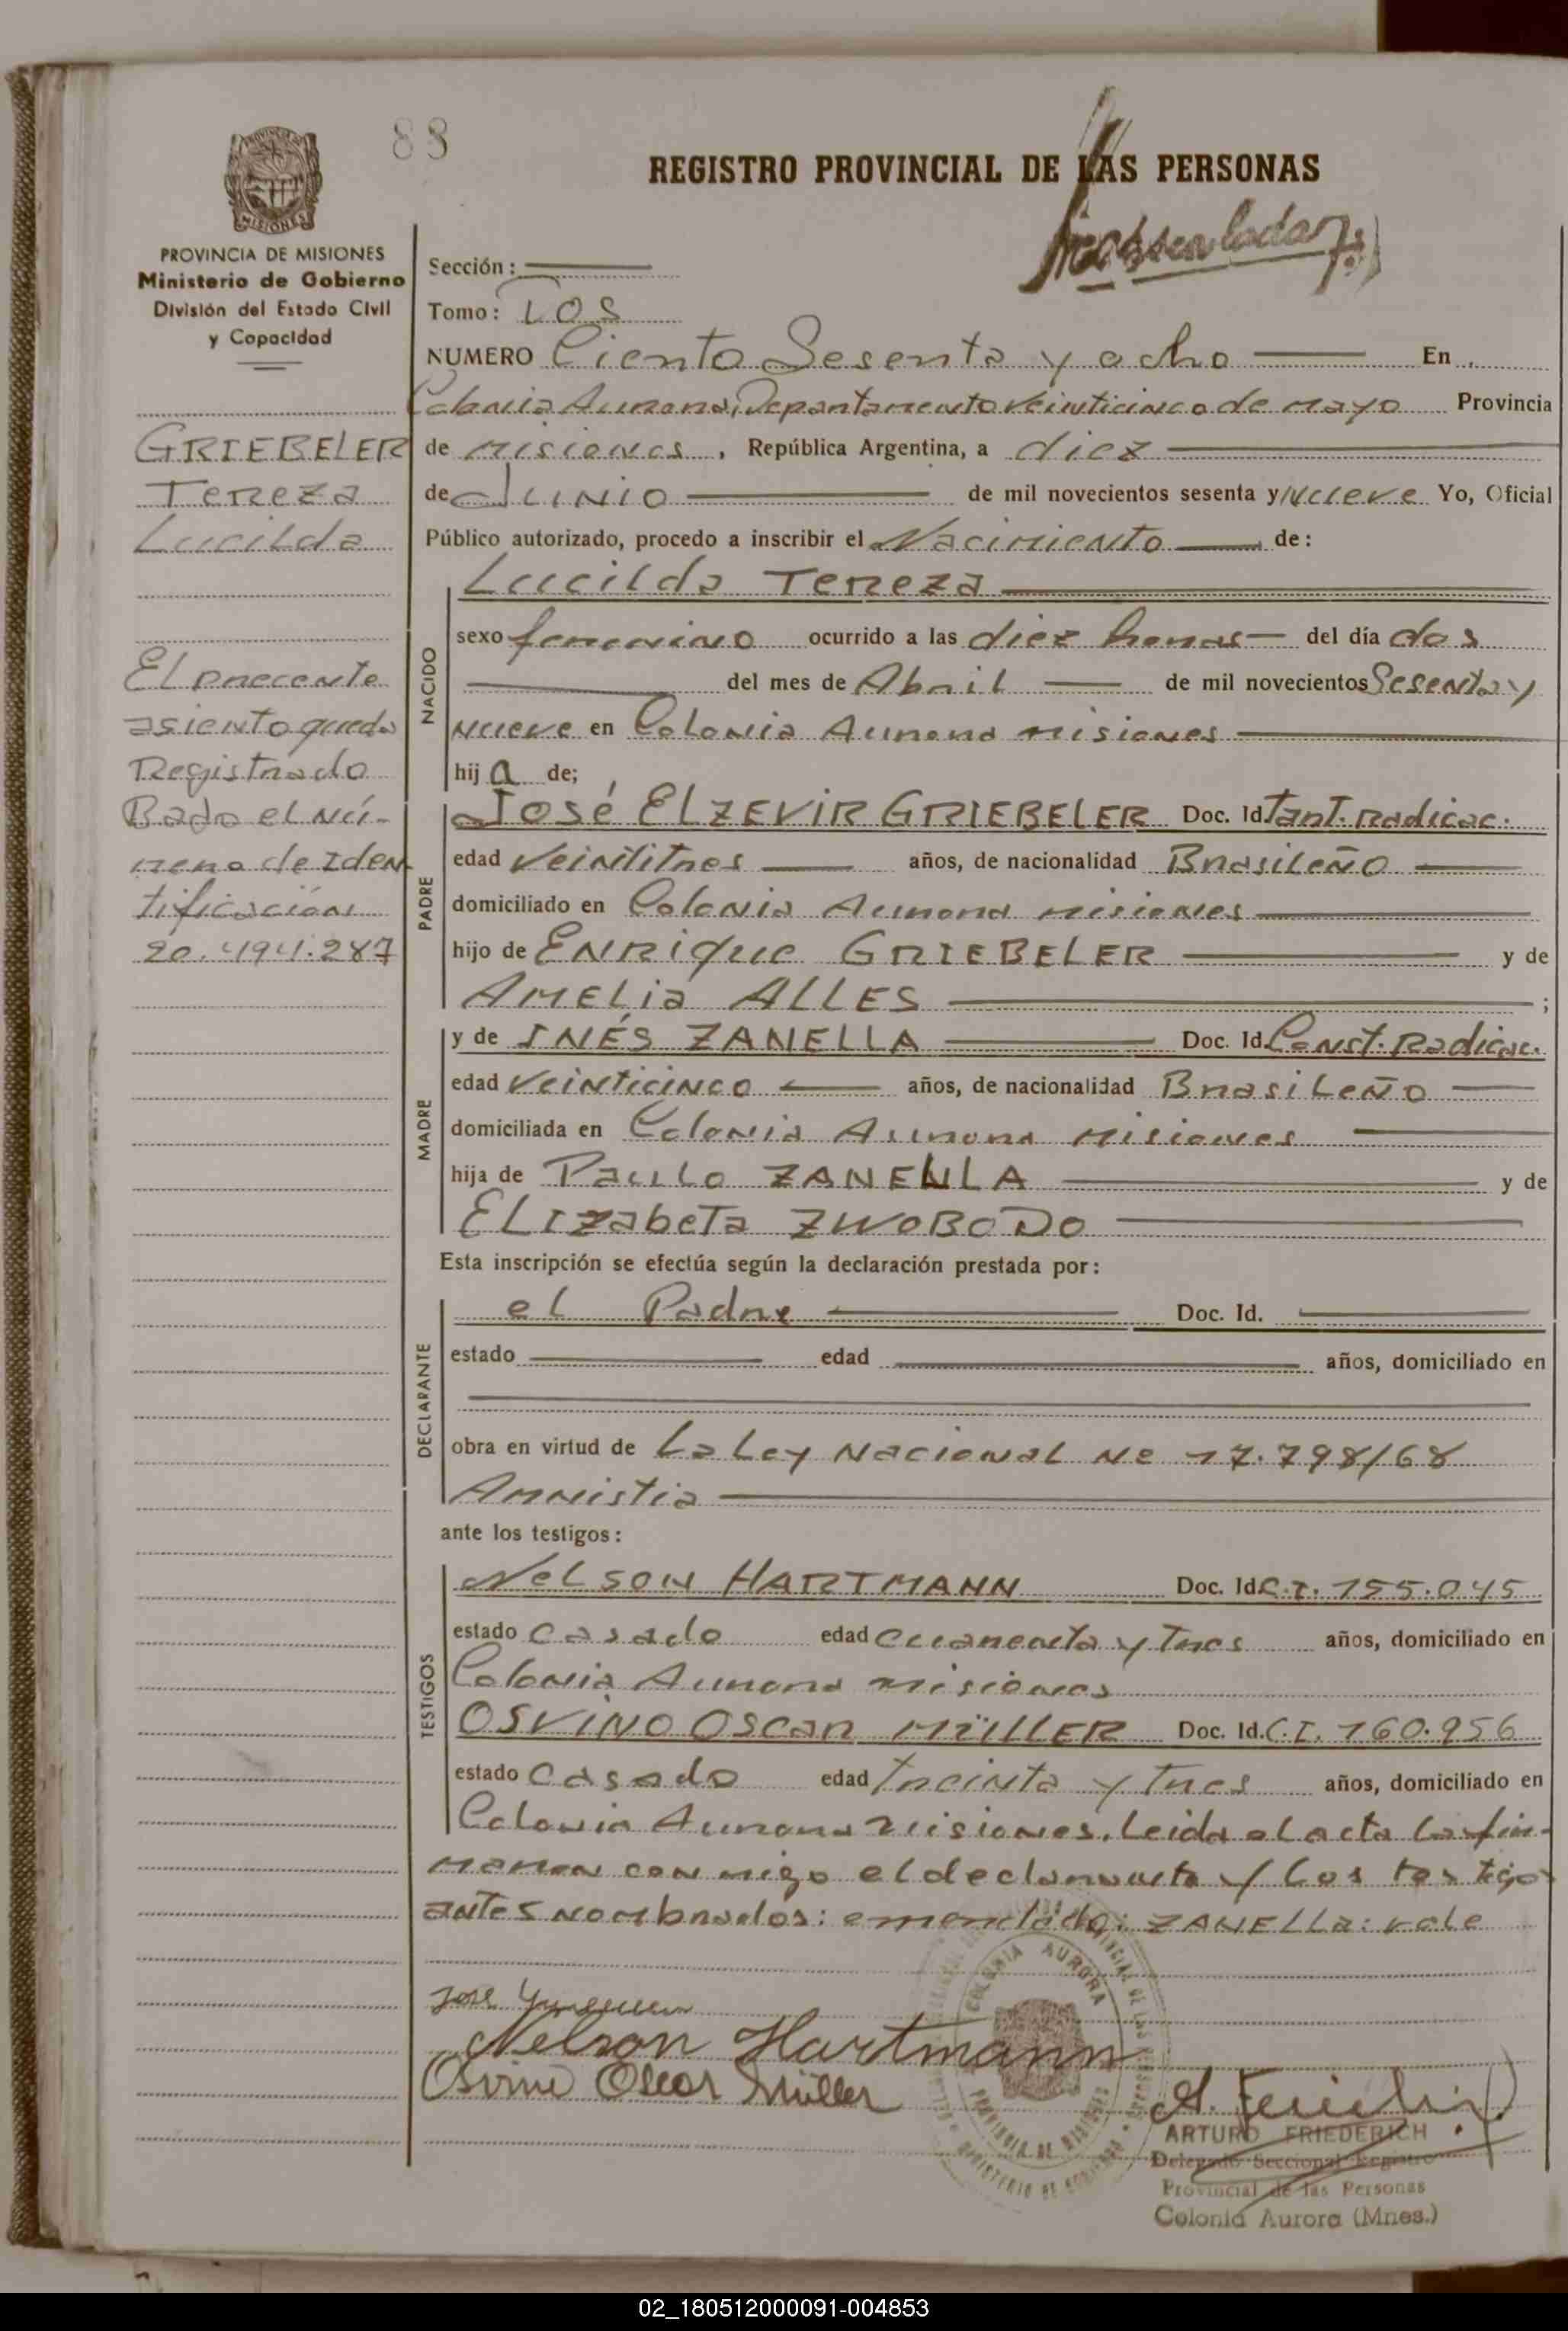 88
REGISTRO PROVINCIAL DE LAS PERSONAS
PROVINCIA DE MISIONES
Ministerio de Gobierno
División del Estado Civil
y Capacidad
GRIEBELER
Tereza
Lucilda
El precente
asiento queda
Registrado
Bado el Nú-
mero de Iden
tificación
20.494.287
Sección:
Tomo: Dos
NUMERO Ciento Sesenta y ocho En
Colonia Aurora, Departamento Veinticinco de mayo Provincia
de misiones, República Argentina, a diez
de Junio de mil novecientos sesenta y Nueve Yo, Oficial
Público autorizado, procedo a inscribir el Nacimiento de:
NACIDO
Lucilda Tereza
sexo femenino ocurrido a las diez horas del día dos
del mes de Abril de mil novecientos Sesenta y
Nueve en Colonia Aurora misiones
hija de;
PADRE
José ELZEVIR GRIEBELER Doc. Id. Radicac.
edad Veintitres años, de nacionalidad Brasileño
domiciliado en Colonia Aurora misiones
hijo de ENRique GRIEBELER y de
AMELia ALLES ;
MADRE
y de INÉS ZANELLA Doc. Id. Const. Radicac.
edad Veinticinco años, de nacionalidad Brasileño
domiciliada en Colonia Aurora misiones
hija de Paulo ZANELLA y de
ELIzabeTa ZWOBODO
Esta inscripción se efectúa según la declaración prestada por:
DECLARANTE
el Padre Doc. Id.
estado edad años, domiciliado en
obra en virtud de La Ley Nacional Nº 17.798/68
Amnistia
ante los testigos:
TESTIGOS
NeLSON HARTMANN Doc. Id. C.I. 155.045
estado casado edad cuarenta y Tres años, domiciliado en
Colonia Aurora misiones
OSVINO OSCAR MÜLLER Doc. Id. C.I. 160.956
estado Casado edad treinta y tres años, domiciliado en
Colonia Aurora misiones. Leida el acta la fir-
maron con migo el declarante y los testigos
antes nombrados: emendado: ZANELLa: vale
José
Nelson Hartmann
Osvino Oscar Müller
COLONIA AURORA
PROVINCIA DE MISIONES
A. Friederich
ARTURO FRIEDERICH
Delegado Seccional Registro
Provincial de las Personas
Colonia Aurora (Mnes.)
02_180512000091-004853